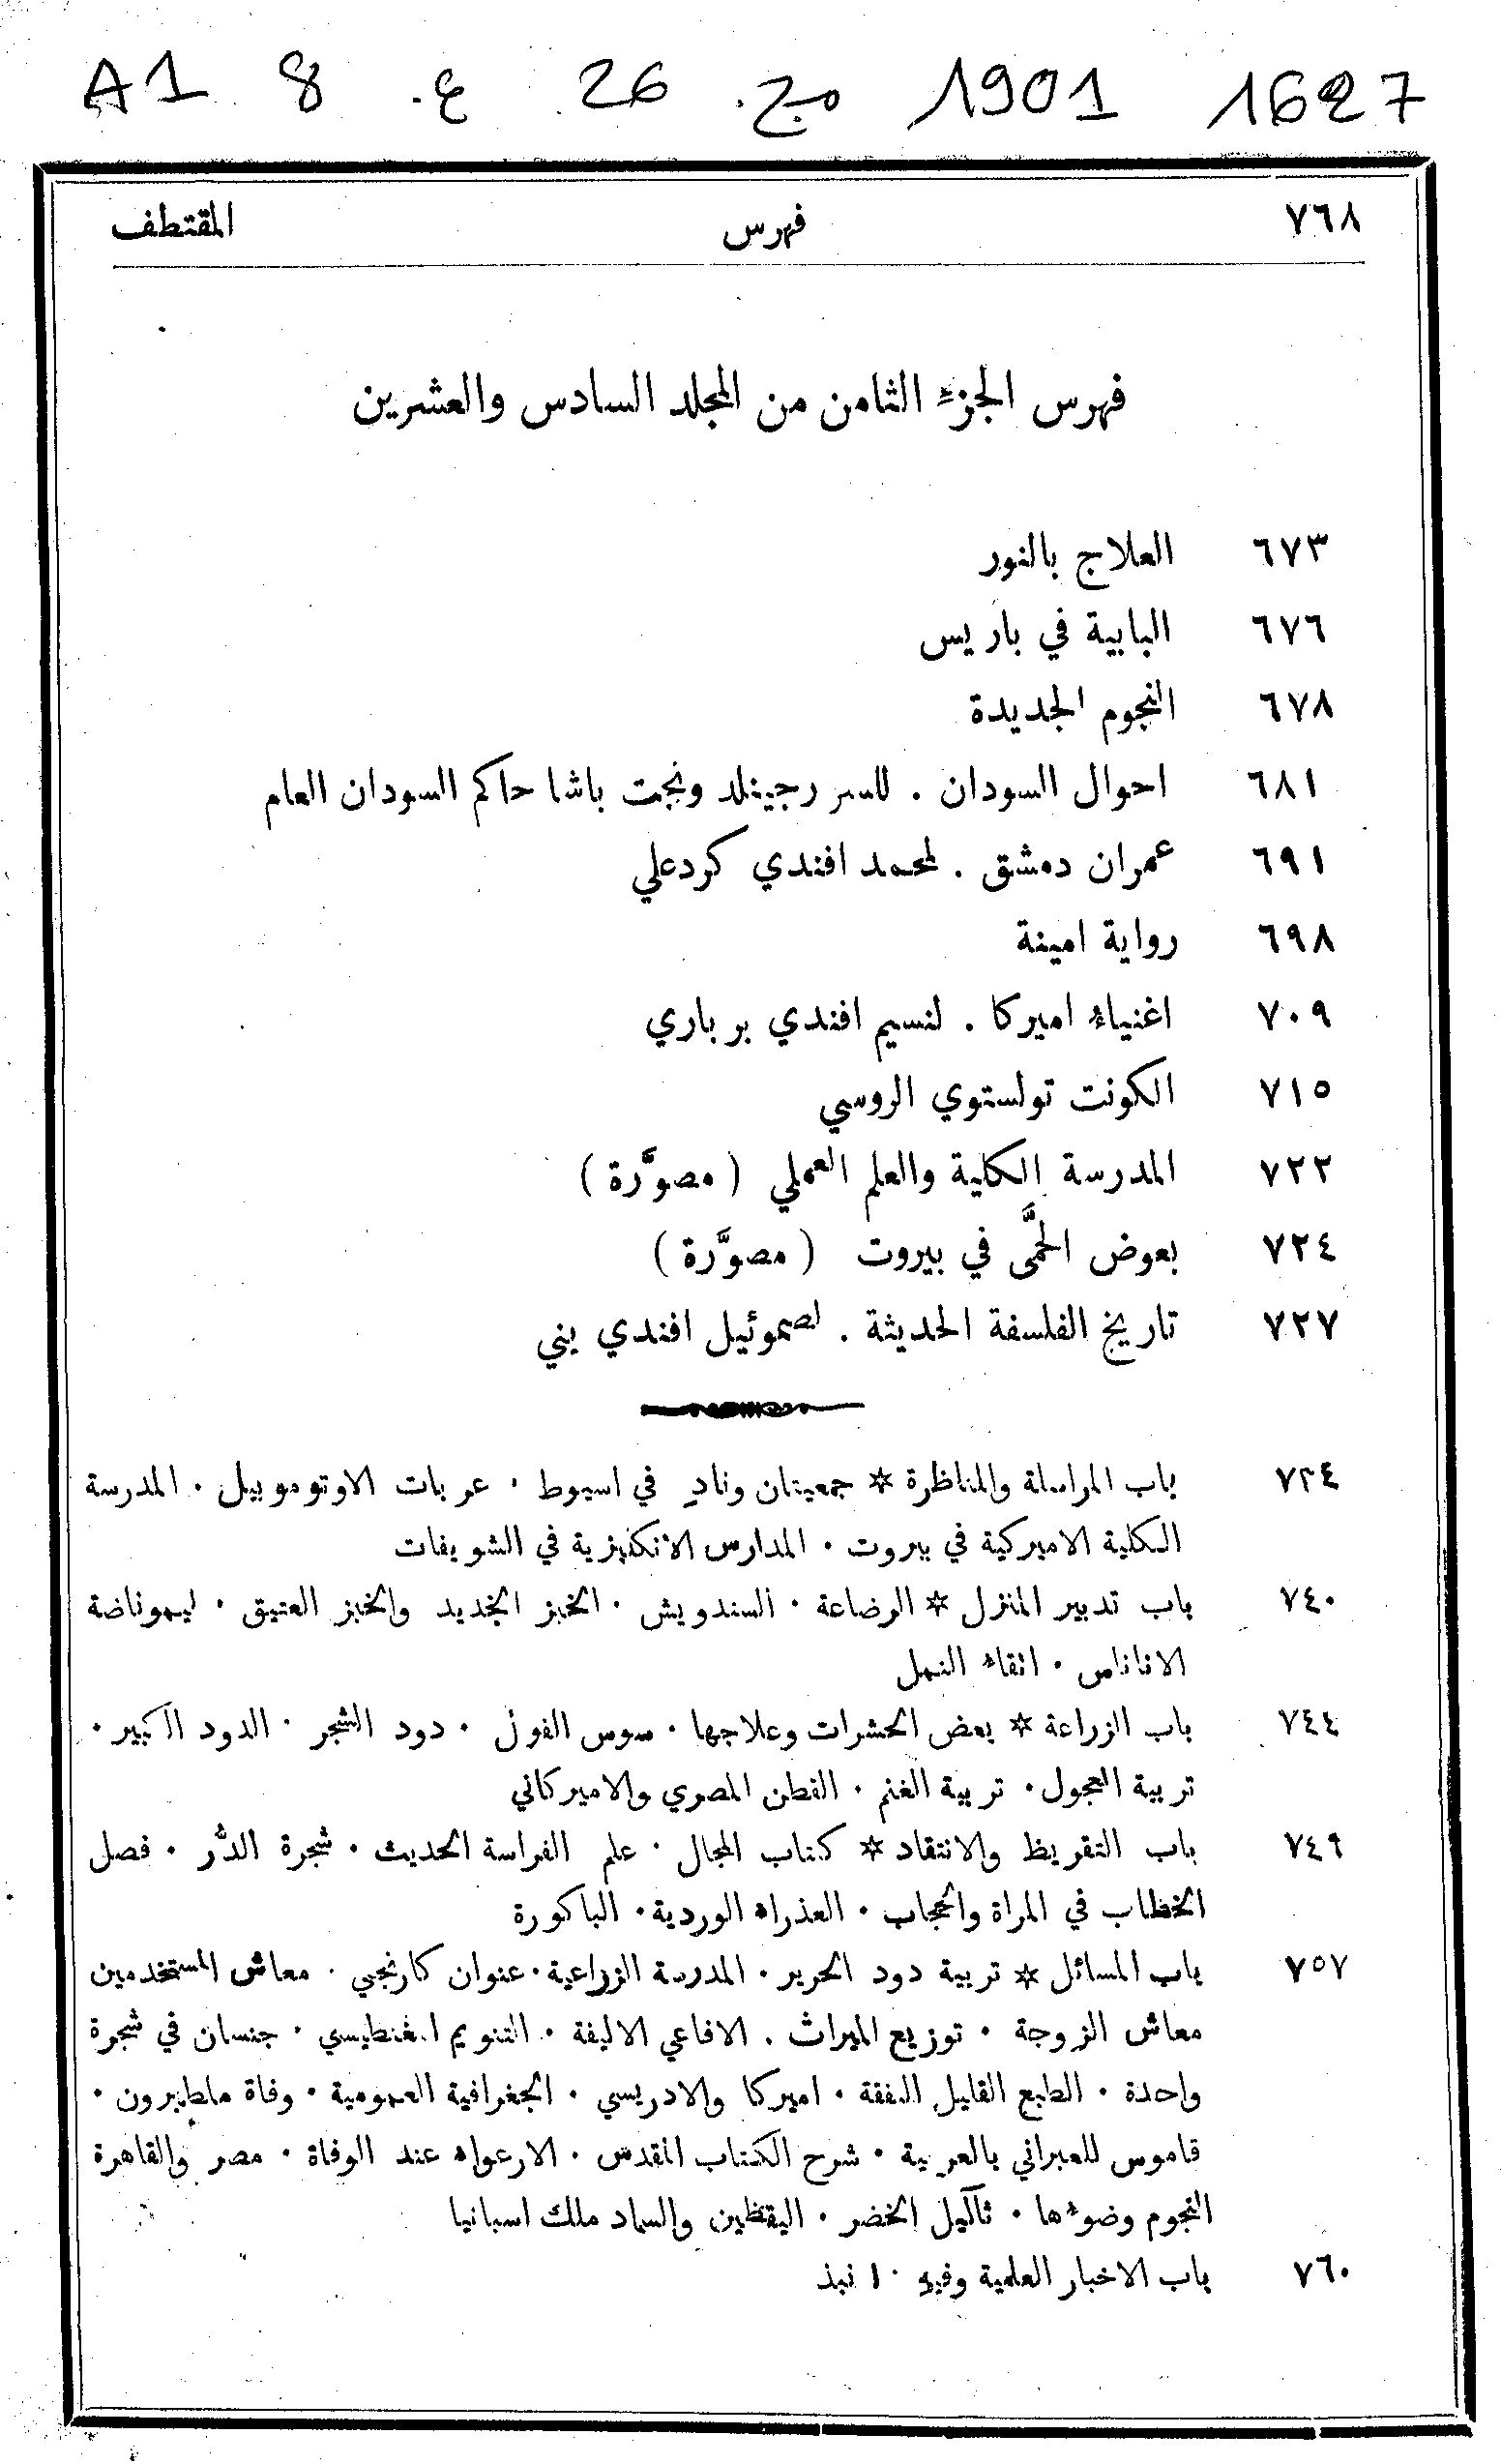 A1 8 ع. 26 مج. 1901 1627
٧٦٨ فهرس المقتطف
فهرس الجزء الثامن من المجلد السادس والعشرين
٦٧٣ العلاج بالنور
٦٧٦ البابية في باريس
٦٧٨ النجوم الجديدة
٦٨١ احوال السودان . للسر رجينلد ونجت باشا حاكم السودان العام
٦٩١ عمران دمشق . لمحمد افندي كردعلي
٦٩٨ رواية امينة
٧٠٩ اغنياء اميركا . لنسيم افندي برباري
٧١٥ الكونت تولستوي الروسي
٧٢٢ المدرسة الكلية والعلم العملي ( مصوَّرة )
٧٢٤ بعوض الحمَّى في بيروت ( مصوَّرة )
٧٢٧ تاريخ الفلسفة الحديثة . لصموئيل افندي يني
٧٣٤ باب المراسلة والمناظرة * جمعيتان ونادٍ في اسيوط . عربات الاوتوموبيل . المدرسة
الكلية الاميركية في بيروت . المدارس الانكليزية في الشويفات
٧٤٠ باب تدبير المنزل * الرضاعة . السندويش . الخبز الجديد والخبز العتيق . ليموناضة
الاناناس . اتقاء النمل
٧٤٤ باب الزراعة * بعض الحشرات وعلاجها . سوس الفول . دود الشجر . الدود الكبير .
تربية العجول . تربية الغنم . القطن المصري والاميركاني
٧٤٩ باب التقريظ والانتقاد * كتاب المجال . علم الفراسة الحديث . شجرة الدُّر . فصل
الخطاب في المراة والحجاب . العذراء الوردية . الباكورة
٧٥٧ باب المسائل * تربية دود الحرير . المدرسة الزراعية . عنوان كارنجي . معاش المستخدمين
معاش الزوجة . توزيع الميراث . الافاعي الاليفة . التنويم المغنطيسي . جنسان في شجرة
واحدة . الطبع القليل النفقة . اميركا والادريسي . الجغرافية العمومية . وفاة ملطبرون .
قاموس للعبراني بالعربية . شرح الكتاب المقدس . الارعواء عند الوفاة . مصر والقاهرة
النجوم وضوءها . ثآليل الخضر . اليقطين والسماد ملك اسبانيا
٧٦٠ باب الاخبار العلمية وفيه ١٠ نبذ